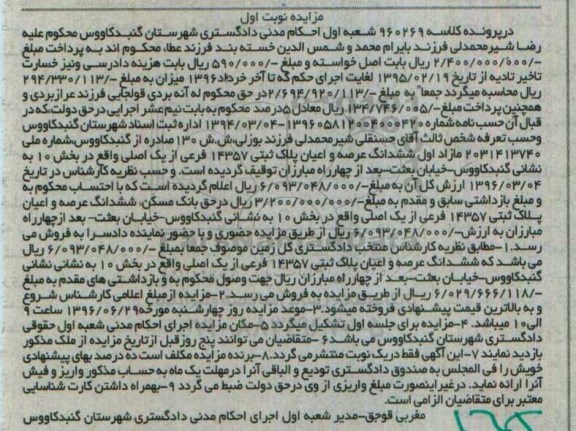 مزایده نوبت اول
درپرونده کلاسه ۹۶۰۲۶۹ شعبه اول احکام مدنی دادگستری شهرستان گنبدکاووس محکوم علیه
رضا شیرمحمدلی فرزند بایرام محمد و شمس الدین خسته بند فرزند عطا، محکوم اند به پرداخت مبلغ
-/۲/۴۰۰/۰۰۰/۰۰۰ ریال بابت اصل خواسته و مبلغ -/۵۹۰/۰۰۰ ریال بابت هزینه دادرسی ونیز خسارت
تاخیر تادیه از تاریخ ۱۳۹۵/۰۲/۱۹ لغایت اجرای حکم که تا آخر خرداد۱۳۹۶ میزان به مبلغ -/۲۹۴/۳۳۰/۱۱۳
ریال محاسبه میگردد جمعا" به مبلغ -/۲/۶۹۴/۹۲۰/۱۱۳درحق محکوم له آنه بردی قولجایی فرزند عرازبردی و
همچنین پرداخت مبلغ-/۱۳۴/۷۴۶/۰۰۵ ریال معادل۵درصد محکوم به بابت نیم عشر اجرایی درحق دولت،که در
قبال آن حسب نامه شماره ۱۳۹۶۰۵۸۱۱۲۰۰۴۰۰۰۴۲۰-۱۳۹۴/۰۳/۰۴ اداره ثبت اسناد شهرستان گنبدکاووس
وحسب تعرفه شخص ثالث آقای حسنقلی شیرمحمدلی فرزند بوزلی،ش.ش ۱۳۰ صادره از گنبدکاووس،شماره ملی
۲۰۳۱۴۱۳۷۴۰ مازاد اول ششدانگ عرصه و اعیان پلاک ثبتی ۱۴۳۵۷ فرعی از یک اصلی واقع در بخش ۱۰ به
نشانی گنبدکاووس-خیابان بعثت-بعد از چهارراه مبارزان توقیف گردیده است. و حسب نظریه کارشناس در تاریخ
۱۳۹۶/۰۳/۰۴ ارزش کل آن به مبلغ-/۶/۰۹۳/۰۴۸/۰۰۰ ریال اعلام گردیده است که با احتساب محکوم به
و مبلغ بازداشتی سابق و مقدم به مبلغ-/۳/۲۰۰/۰۰۰/۰۰۰ ریال درحق بانک مسکن، ششدانگ عرصه و اعیان
پلاک ثبتی ۱۴۳۵۷ فرعی از یک اصلی واقع در بخش ۱۰ به نشانی گنبدکاووس-خیابان بعثت- بعد ازچهارراه
مبارزان به ارزش-/۶/۰۹۳/۰۴۸/۰۰۰ ریال از طریق مزایده حضوری و با حضور نماینده دادسرا به فروش می
رسد.۱-مطابق نظریه کارشناس منتخب دادگستری کل زمین موصوف جمعاً بمبلغ -/۶/۰۹۳/۰۴۸/۰۰۰ ریال
می باشد که ششدانگ عرصه و اعیان پلاک ثبتی ۱۴۳۵۷ فرعی از یک اصلی واقع در بخش ۱۰ به نشانی نشانی
گنبدکاووس-خیابان بعثت-بعد از چهارراه مبارزان ریال جهت وصول محکوم به و بازداشتی های مقدم به مبلغ
-/۶/۰۲۹/۶۶۶/۱۱۸ ریال از طریق مزایده به فروش می رسد.۲-مزایده از مبلغ اعلامی کارشناس شروع
و به بالاترین قیمت پیشنهادی فروخته میشود.۳-موعد مزایده روز چهارشنبه مورخه۱۳۹۶/۰۶/۲۹ ساعت ۹
الی۱۰ میباشد. ۴-مزایده برای جلسه اول تشکیل میگردد ۵-مکان مزایده اجرای احکام مدنی شعبه اول حقوقی
دادگستری شهرستان گنبدکاووس می باشد ۶-متقاضیان می توانند پنج روزقبل از تاریخ مزایده از ملک مذکور
بازدید نمایند ۷-این آگهی فقط دریک نوبت منتشر می گردد.۸-برنده مزایده مکلف است ده درصد بهای پیشنهادی
خویش را فی المجلس به صندوق دادگستری تودیع و الباقی آنرا درمهلت یک ماه به حساب مذکور واریز و فیش
آنرا ارائه نماید. درغیراینصورت مبلغ واریزی از وی درحق دولت ضبط می گردد ۹-بهمراه داشتن کارت شناسایی
معتبر برای متقاضیان الزامی است.
مغربی قوجق-مدیر شعبه اول اجرای احکام مدنی دادگستری شهرستان گنبدکاووس